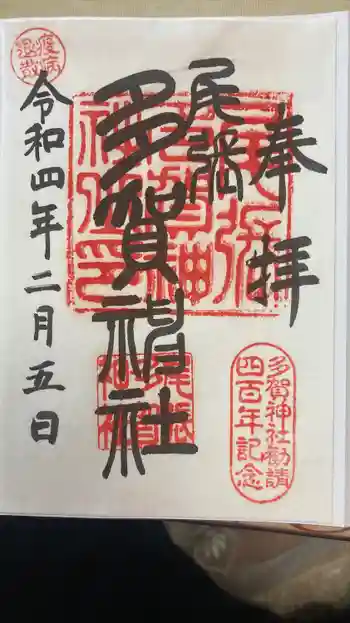 奉拝
尾張
多賀神社
令和四年二月五日
疫病
退散
多賀神社勧請
四百年記念